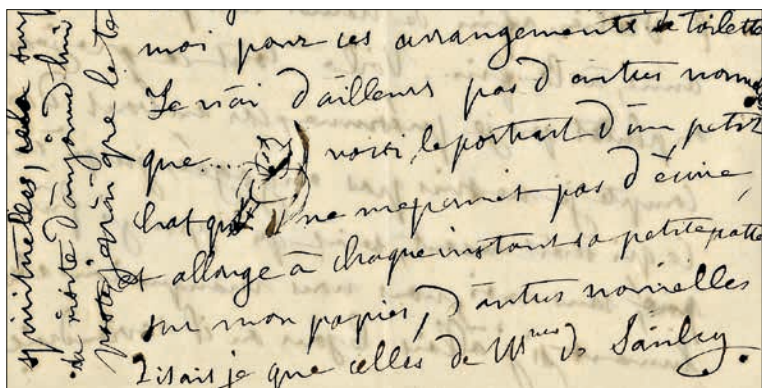 moi pour ces arrangements de toilette
Je n'ai d'ailleurs pas d'autres nouvelles
que..... voici, le portrait d'un petit
chat qui ne me permet pas d'écrire,
et allonge à chaque instant sa petite patte
sur mon papier, d'autres nouvelles
disais je que celles de Mmes de Saulcy.
spirituelles, cela
d'aujourd'hui
poste, qu'à que le